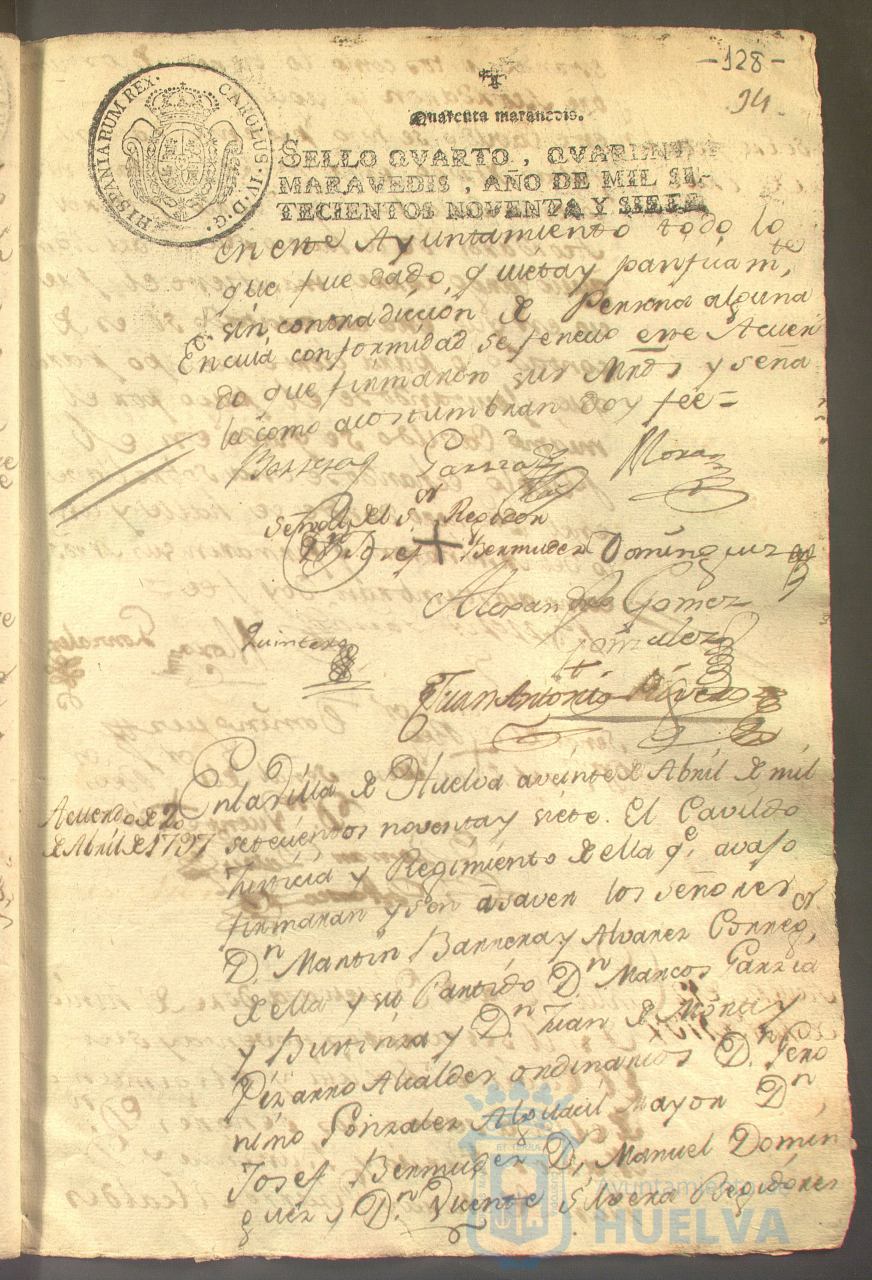 -128-
94.
Quarenta maravedis.
HISPANIARUM REX. CAROLUS·IV·D·G·
SELLO QVARTO, QVARENTA
MARAVEDIS, AÑO DE MIL SE-
TECIENTOS NOVENTA Y SIETE
en este Ayuntamiento todo lo
que fue dado, quieta y pacificam.te
sin contradiccion de Persona alguna
En cuia conformidad se fenecio este Acuer
do que firmaron sus Mrds y seña
la como acostumbran doy fee =
Barrera Garzia Mora
Señal del s.or Regidor
Dn Josef + Bermudez Dominguez
Alexandro Gomez
Gonzalez
Quintero
Juan Antonio Rivero
Acuerdo de 20
de Abril de 1797
En la Villa de Huelva a veinte de Abril de mil
setecientos noventa y siete. El Cavildo
Justicia y Regimiento de ella q.e avajo
firmaran y son a saver los señores
D.n Martin Barrera y Alvarez Correg.or
de ella y su Partido D.n Marcos Garzia
y D.n Juan de Mora y
Pizarro Alcaldes ordinarios D.n Jero
nimo Gonzalez Alguacil mayor D.n
Josef Bermudez D.n Manuel Domin
guez y D.n Vicente Silvera Regidores
Ayuntamiento de
HUELVA